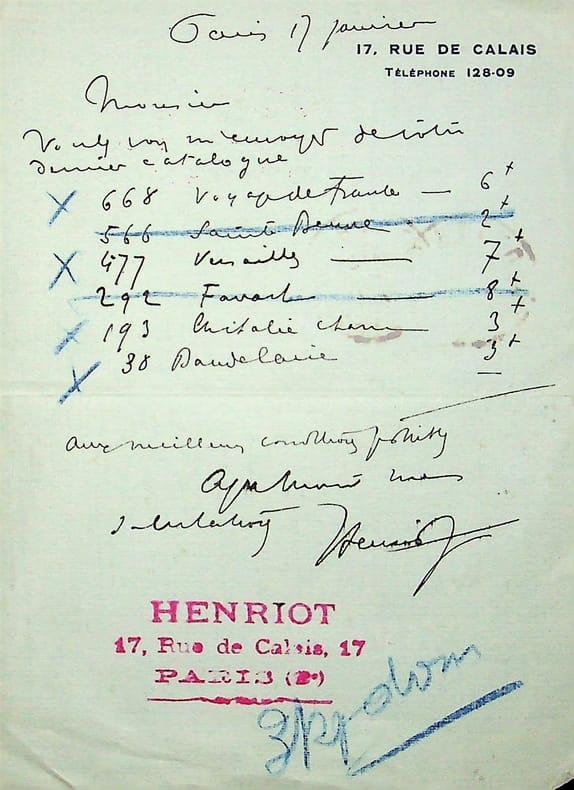 Paris 17 janvier
17, RUE DE CALAIS
TÉLÉPHONE 128-09
Monsieur
Voulez vous m'envoyer de votre
dernier catalogue
X 668 Voyage de France — 6+
566 Sainte Beuve 2+
X 477 Versailles — 7+
292 Favart — 8+
X 193 3+
X 38 Baudelaire 3+
aux meilleures conditions possibles
Agréez mes
salutations Henriot
HENRIOT
17, Rue de Calais, 17
PARIS (9e)